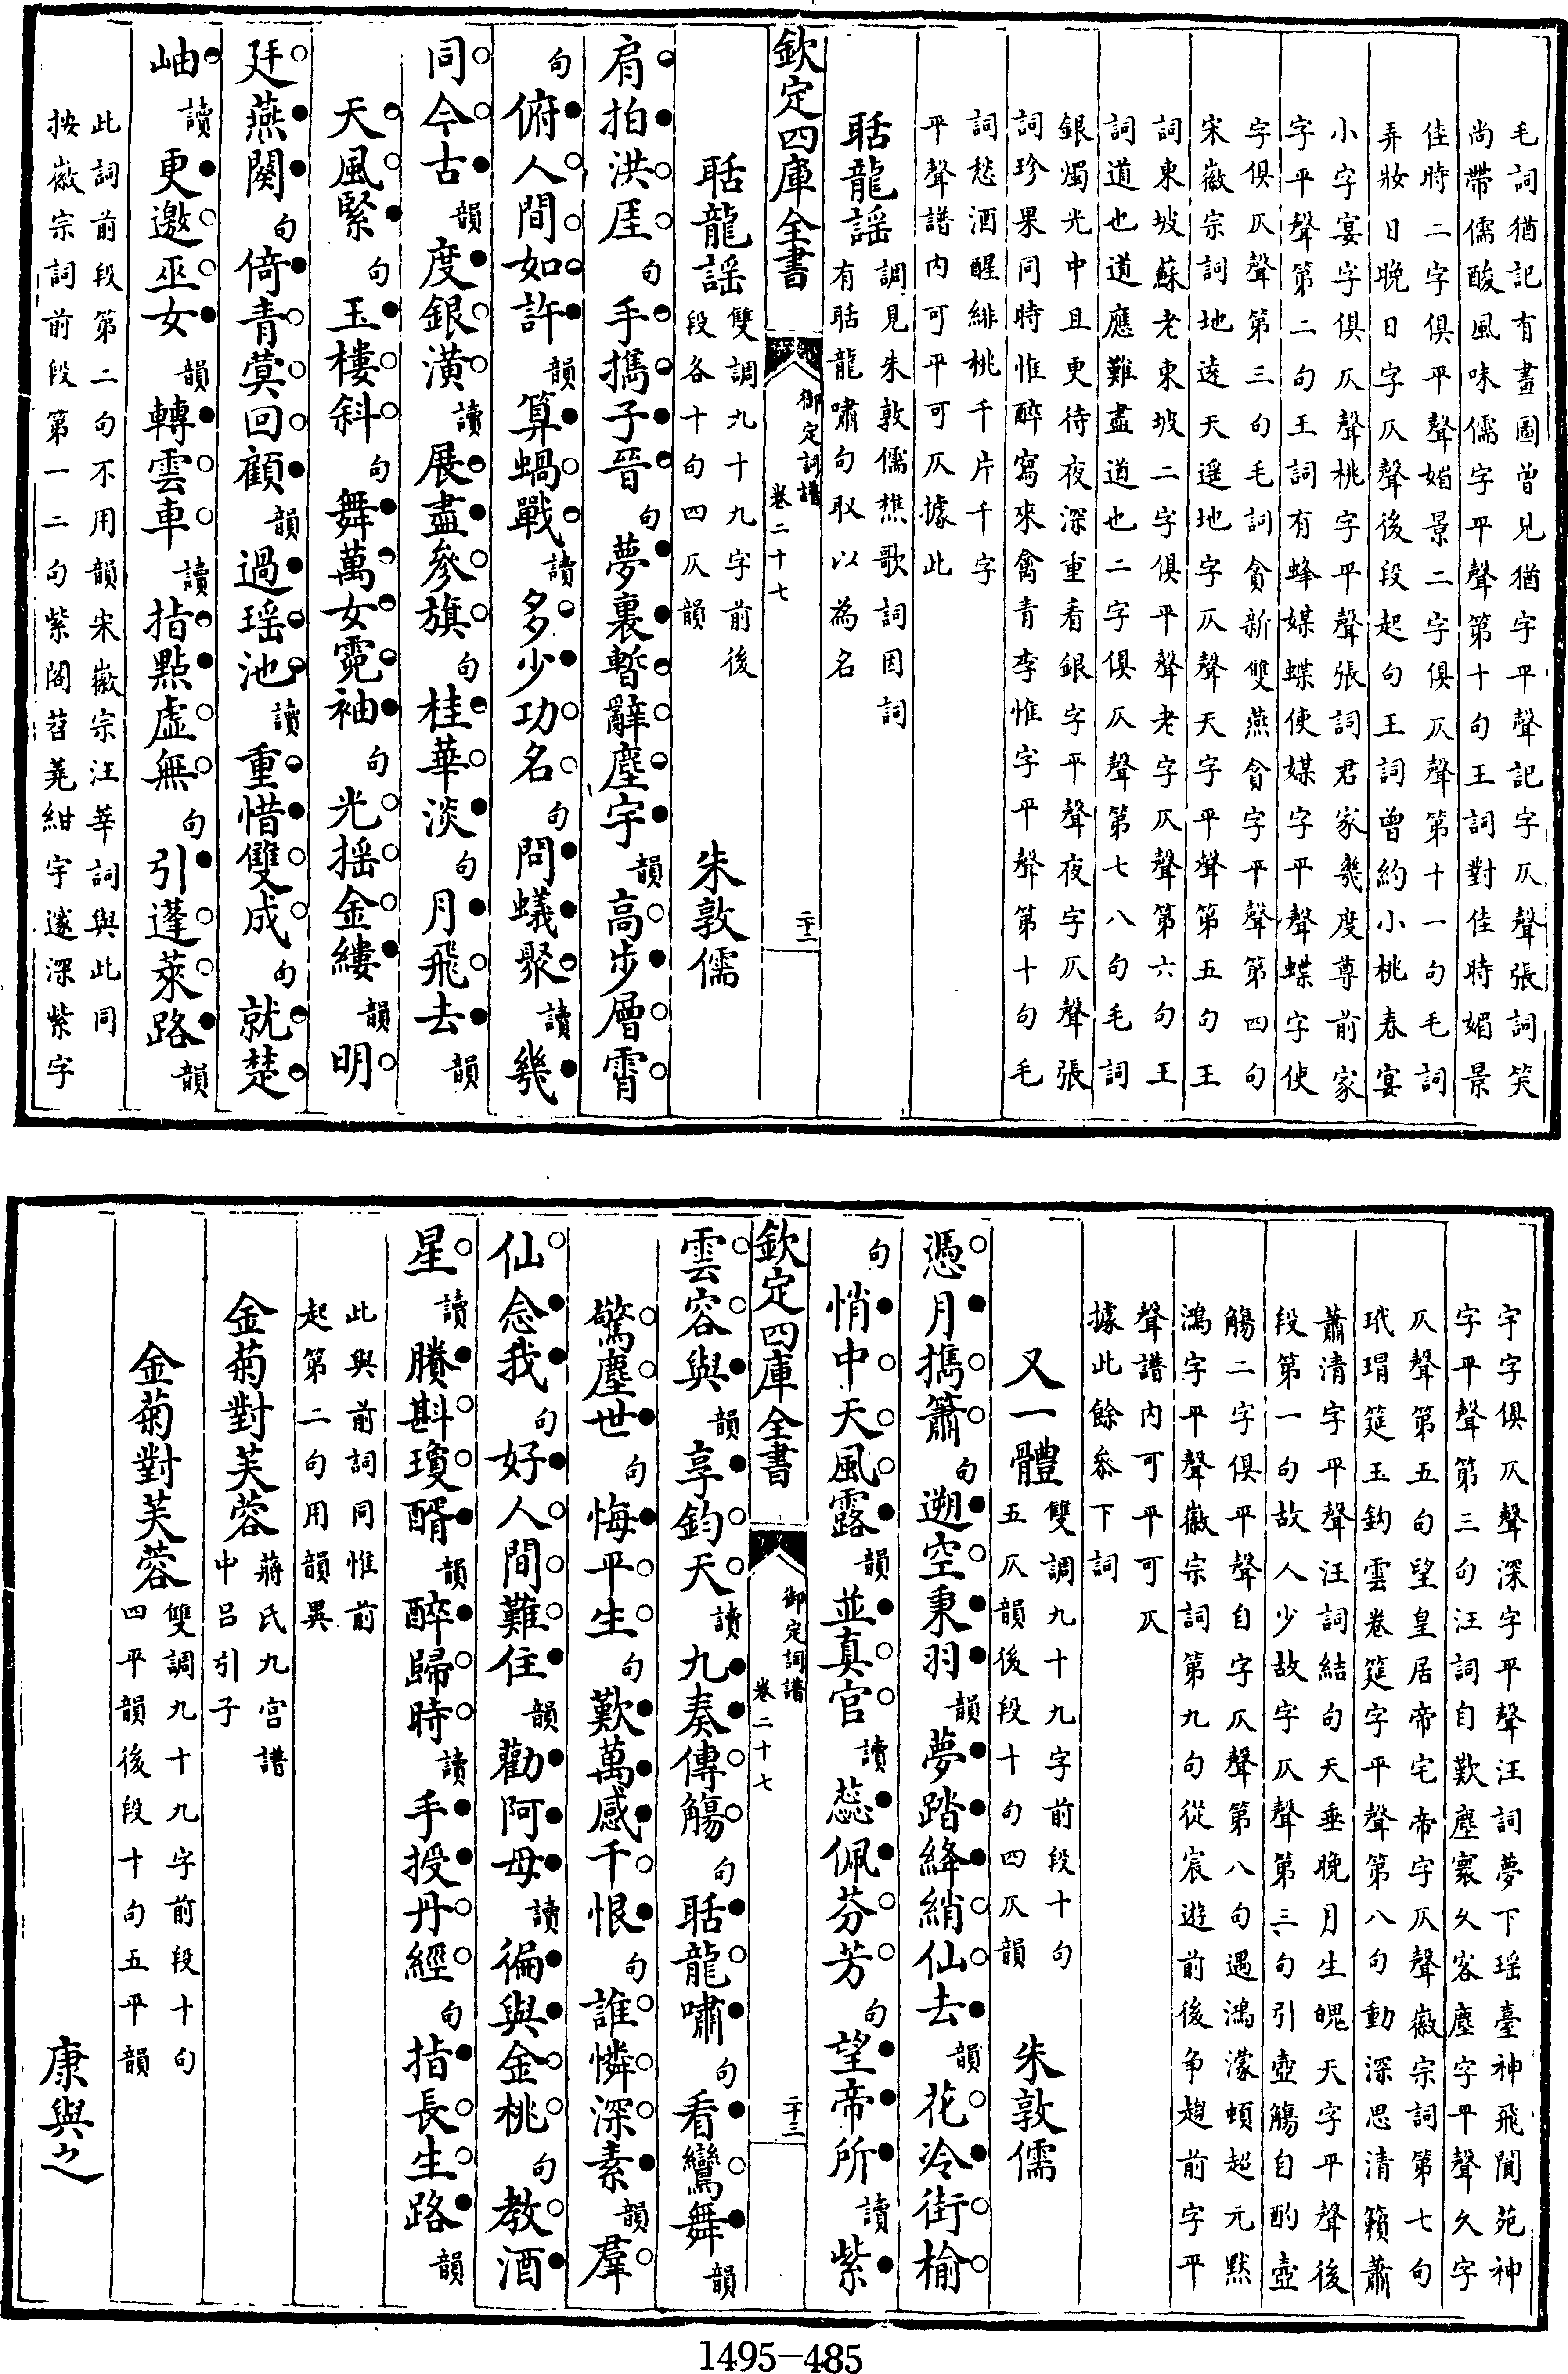 毛詞猶記有畫圖曾兄猶字平聲記字仄聲張詞笑
尚帶儒酸風味儒字平聲第十句王詞對佳時媚景
佳時二字俱平聲媚景二字俱仄聲第十一句毛詞
弄妝日晩日字仄聲後段起句王詞曾約小桃春宴
小字宴字俱仄聲桃字平聲張詞君家幾度尊前家
字平聲第二句王詞有蜂媒蝶使媒字平聲蝶字使
字俱仄聲第三句毛詞貪新雙燕貪字平聲第四句
宋徽宗詞地逺天遥地字仄聲天字平聲第五句王
詞東坡蘇老東坡二字俱平聲老字仄聲第六句王
詞道也道應難盡道也二字俱仄聲第七八句毛詞
銀燭光中且更待夜深重看銀字平聲夜字仄聲張
詞珍果同時惟醉寫來禽青李惟字平聲第十句毛
詞愁酒醒緋桃千片千字
平聲譜内可平可仄據此
聒龍謡調見朱敦儒樵歌詞因詞
有聒龍嘯句取以為名
欽定四庫全書 御定詞譜 卷二十七 二十二
聒龍謡雙調九十九字前後
段各十句四仄韻 朱敦儒
肩拍洪厓句手攜子晉句夢裏暫辭塵宇韻高步層霄
句俯人間如許韻算蝸戰讀多少功名句問蟻聚讀幾
同今古韻度銀潢讀展盡參旗句桂華淡句月飛去韻
天風緊句玉樓斜句舞萬女霓袖句光揺金縷韻明
廷燕闋句倚青蓂回顧韻過瑶池讀重惜雙成句就楚
岫讀更邀巫女韻轉雲車讀指點虚無句引蓬萊路韻
此詞前段第二句不用韻宋徽宗汪莘詞與此同
按徽宗詞前段第一二句紫閣苕荛紺宇邃深紫字
宇字俱仄聲深字平聲汪詞夢下瑶臺神飛閬苑神
字平聲第三句汪詞自歎塵寰久客塵字平聲久字
仄聲第五句望皇居帝宅帝字仄聲徽宗詞第七句
玳瑁筵玉鈎雲卷筵字平聲第八句動深思清籟蕭
蕭清字平聲汪詞結句天垂晚月生魄天字平聲後
段第一句故人少故字仄聲第三句引壺觴自酌壺
觴二字俱平聲自字仄聲第八句遇鴻濛頓超元黙
鴻字平聲徽宗詞第九句從宸遊前後争趨前字平
聲譜内可平可仄
據此餘叅下詞
又一體雙調九十九字前段十句
五仄韻後段十句四仄韻 朱敦儒
憑月攜簫句遡空秉羽韻夢踏絳綃仙去韻花冷街榆
句悄中天風露韻並真官讀蕊佩芬芳句望帝所讀紫
雲容與韻享鈞天讀九奏傳觴句聒龍嘯句看鸞舞韻
欽定四庫全書 御定詞譜 卷二十七 二十三
驚塵世句悔平生句歎萬感千恨句誰憐深素韻羣
仙念我句好人間難住韻勸阿母讀徧與金桃句教酒
星讀賸斟瓊醑韻醉歸時讀手授丹經句指長生路韻
此與前詞同惟前
起第二句用韻異
金菊對芙蓉蔣氏九宫譜
中吕引子
金菊對芙蓉雙調九十九字前段十句
四平韻後段十句五平韻
康與之
1495-485